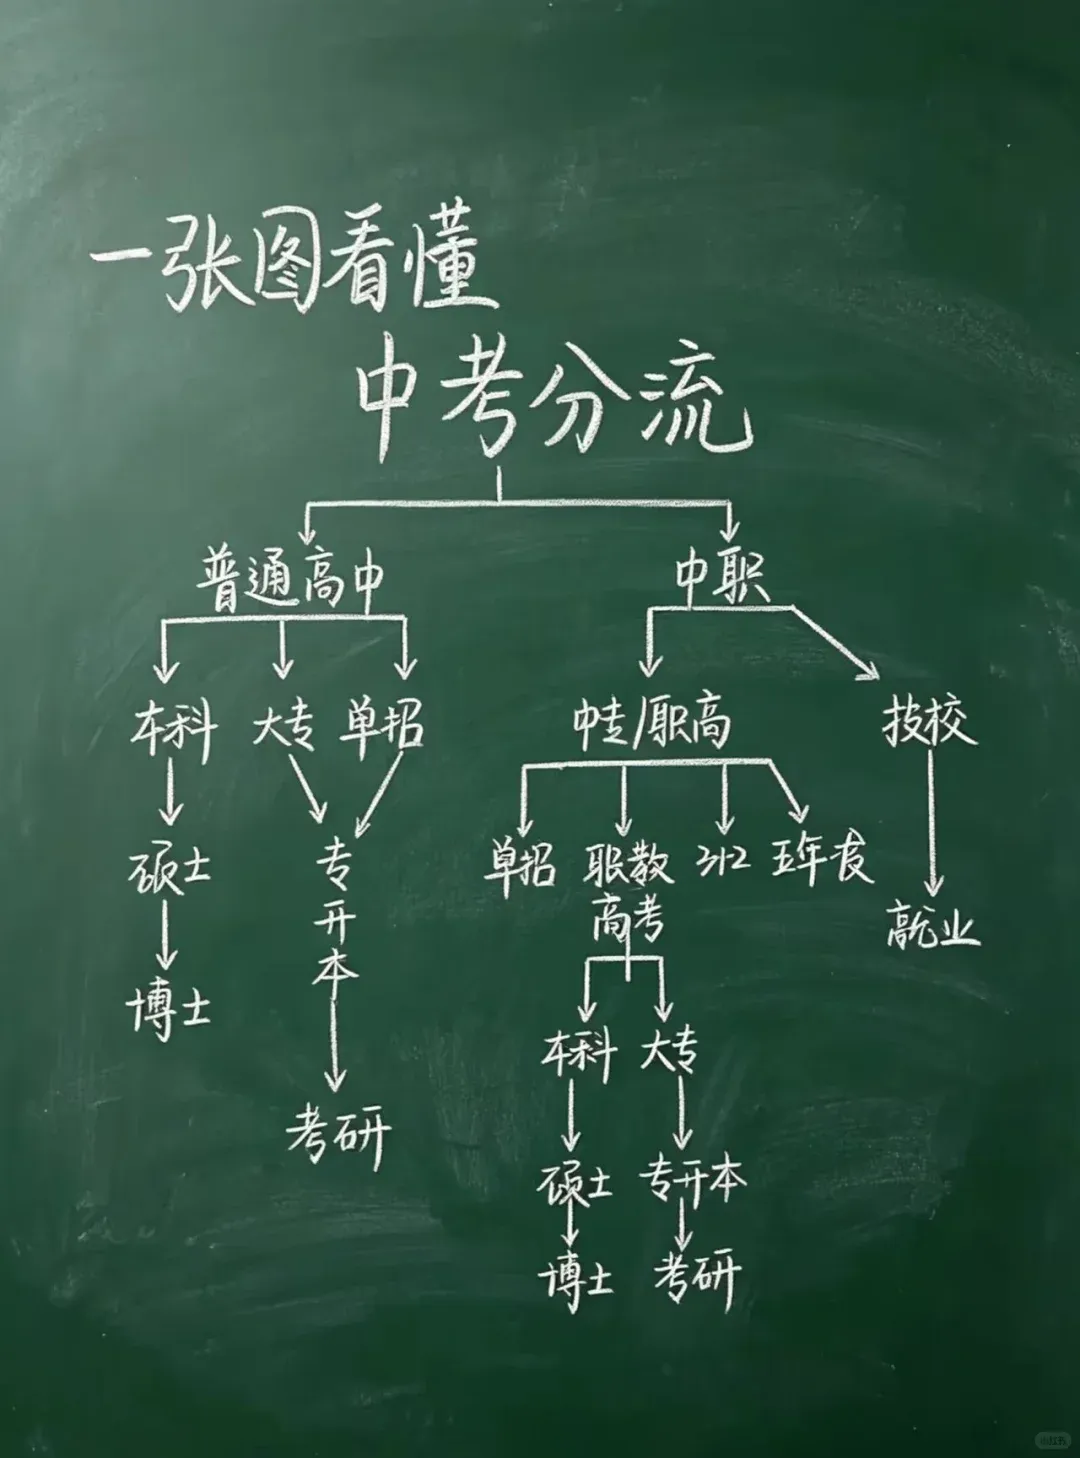 一张图看懂
中考分流
普通高中 中职
本科 大专 单招 中专/职高 技校
硕士 专升本 单招 职教高考 3+2 五年长
博士 就业
考研 本科 大专
硕士 专升本
博士 考研
小红书